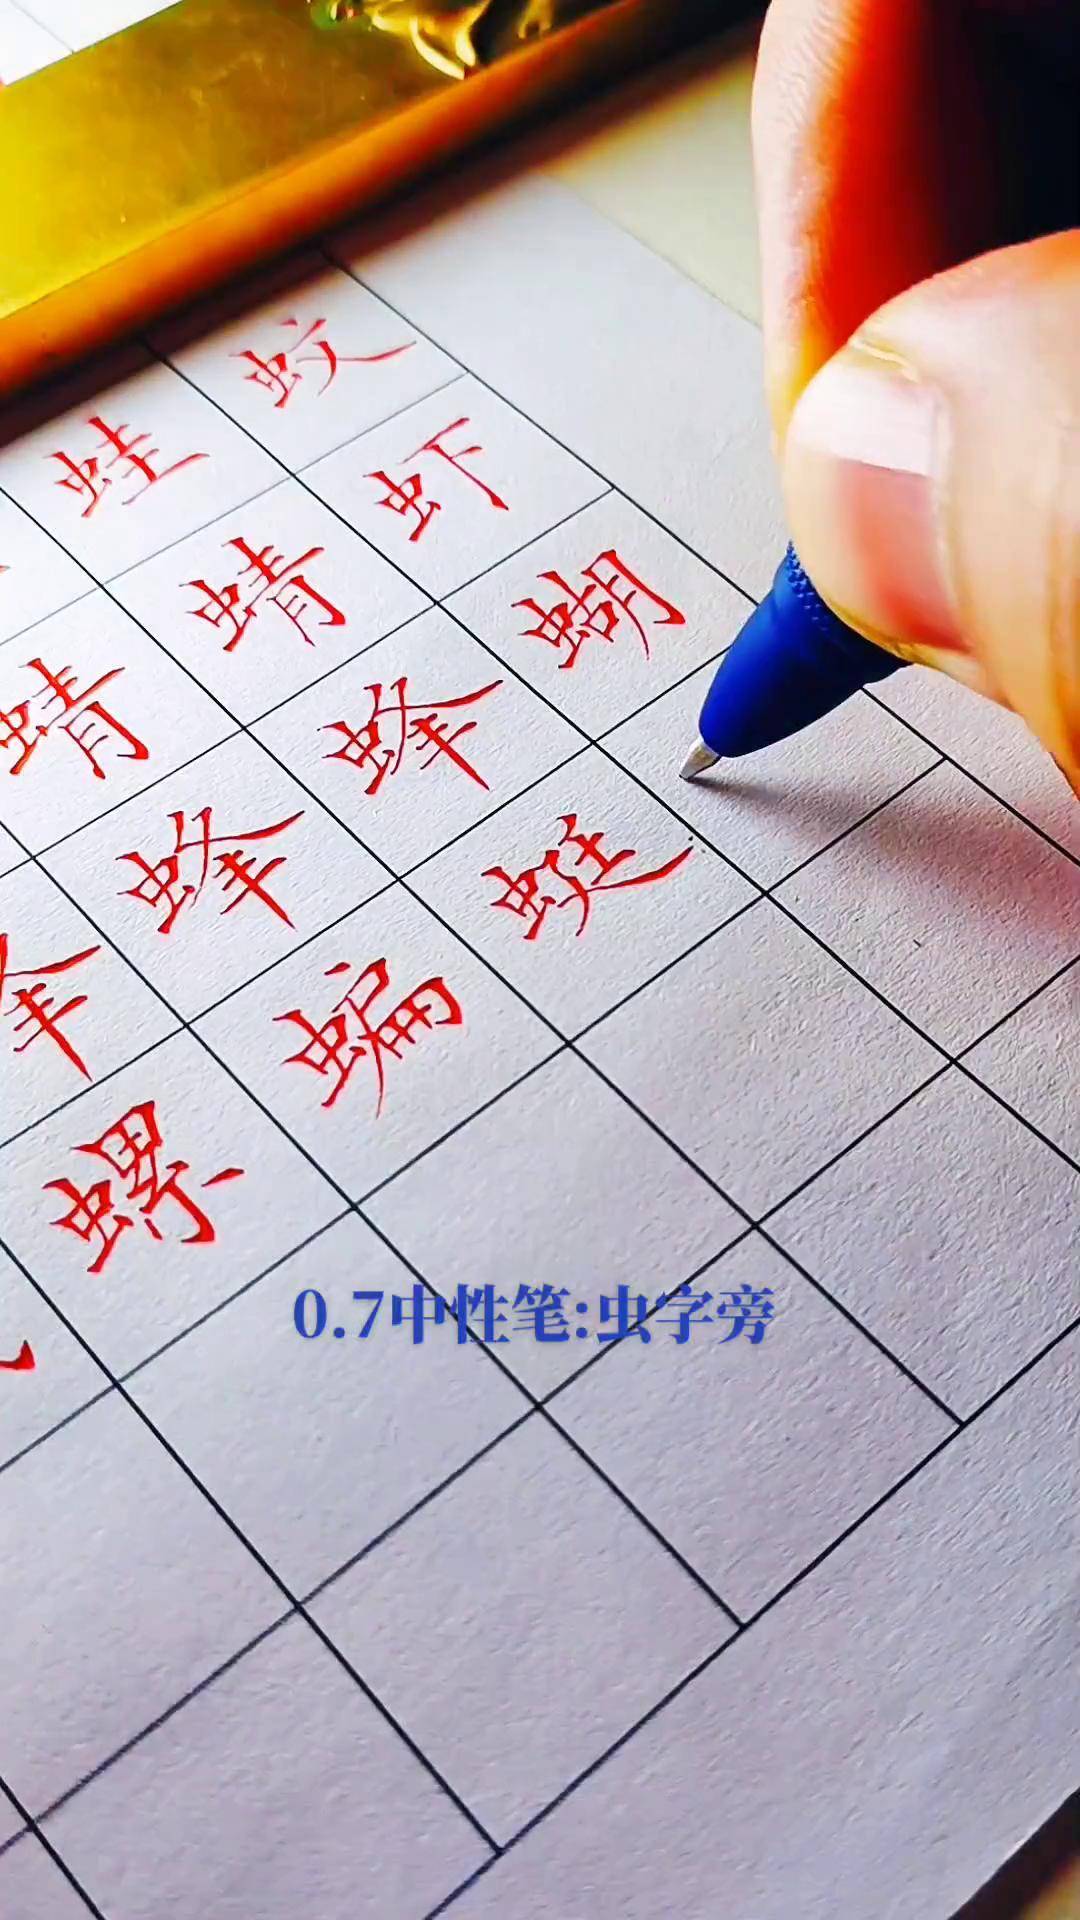 蛙蚊
蜻蜻虾
蜂蜂蝴
螺蝙蜓
0.7中性笔:虫字旁